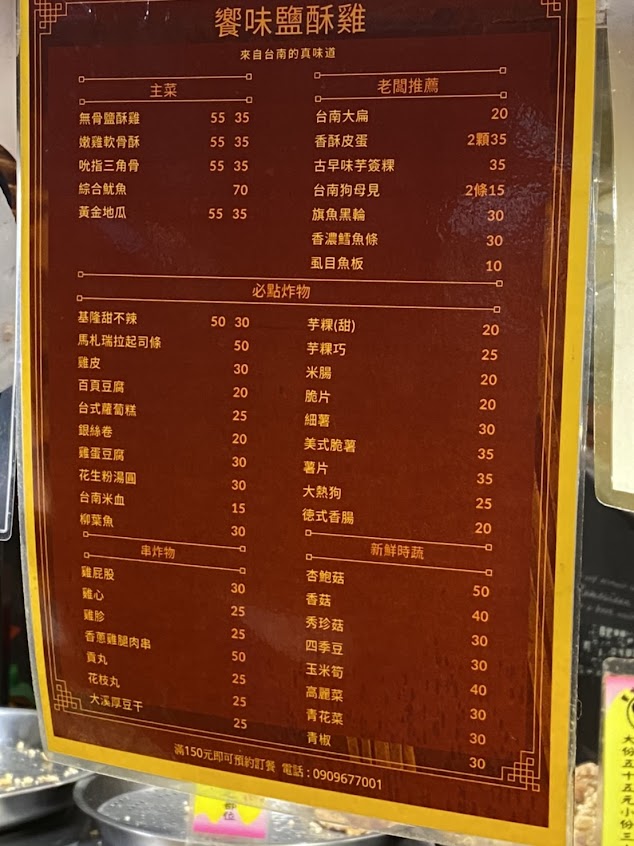 饗味鹽酥雞
來自台南的真味道
主菜
無骨鹽酥雞 55 35
嫩雞軟骨酥 55 35
吮指三角骨 55 35
綜合魷魚 70
黃金地瓜 55 35
老闆推薦
台南大扁 20
香酥皮蛋 2顆35
古早味芋簽粿 35
台南狗母見 2條15
旗魚黑輪 30
香濃鱈魚條 30
虱目魚板 10
必點炸物
基隆甜不辣 50 30
馬札瑞拉起司條 50
雞皮 30
百頁豆腐 20
台式蘿蔔糕 25
銀絲卷 20
雞蛋豆腐 30
花生粉湯圓 30
台南米血 15
柳葉魚 30
芋粿(甜) 20
芋粿巧 25
米腸 20
脆片 20
細薯 30
美式脆薯 35
薯片 35
大熱狗 25
德式香腸 20
串炸物
雞屁股 30
雞心 25
雞胗 25
香蔥雞腿肉串 50
貢丸 25
花枝丸 25
大溪厚豆干 25
新鮮時蔬
杏鮑菇 50
香菇 40
秀珍菇 30
四季豆 30
玉米筍 40
高麗菜 30
青花菜 30
青椒 30
滿150元即可預約訂餐 電話：0909677001
大份五十五元小份三